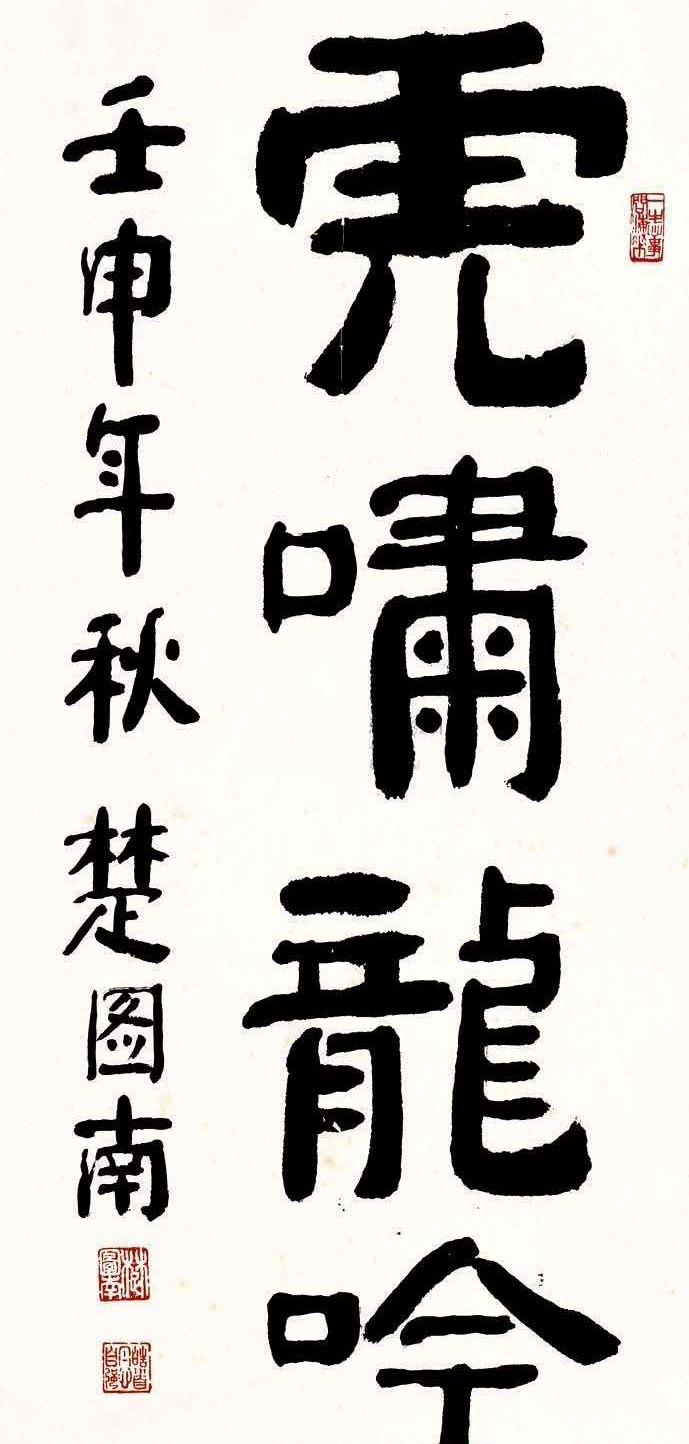 虎啸龍吟
壬申年秋 楚图南